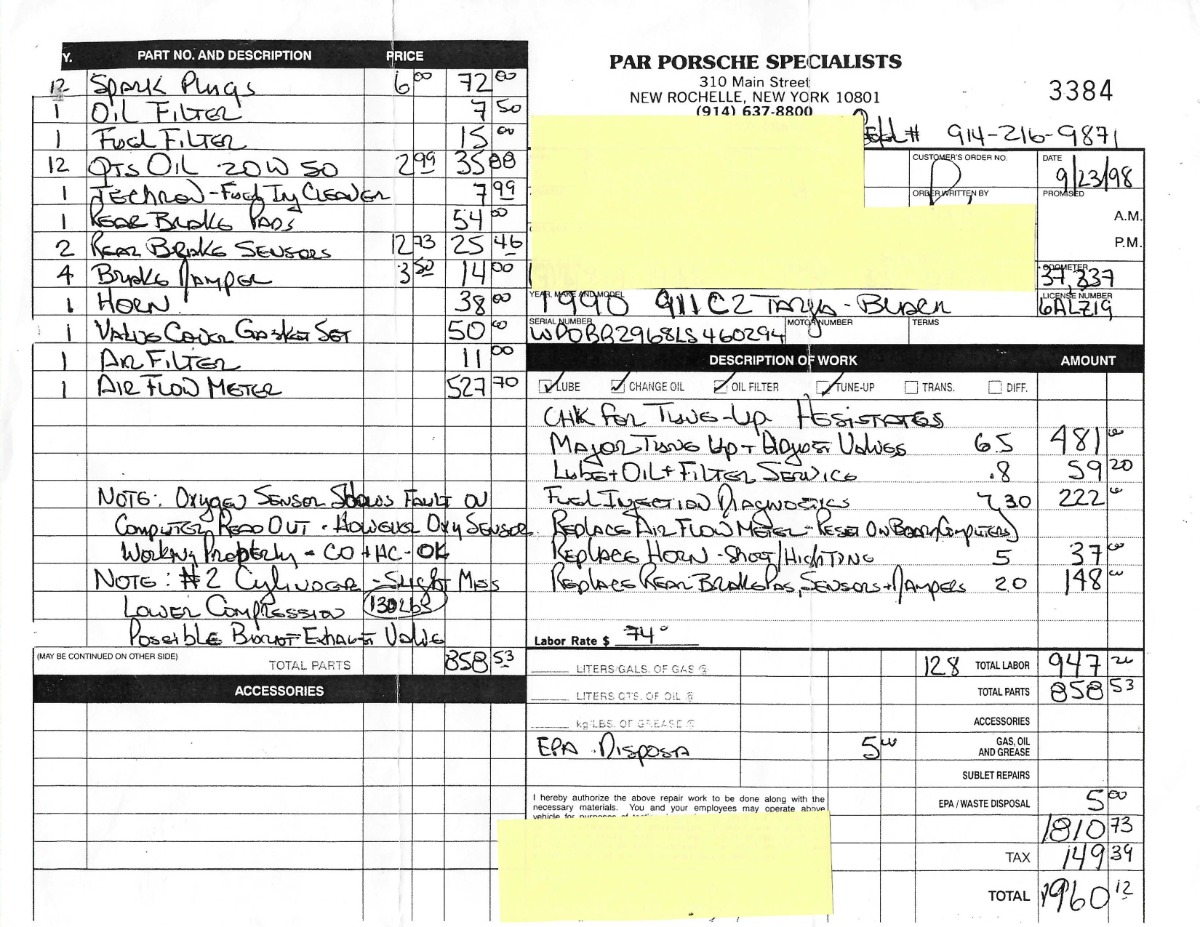 PAR PORSCHE SPECIALISTS
310 Main Street
NEW ROCHELLE, NEW YORK 10801
(914) 637-8800
3384
914-216-9871
CUSTOMER'S ORDER NO.
DATE 9/23/98
ORDER WRITTEN BY
PROMISED
A.M.
P.M.
ODOMETER 37,337
YEAR, MAKE AND MODEL 1990 911 C2 Targa - Black
LICENSE NUMBER 6ALZ19
SERIAL NUMBER WP0BB2968LS460294
MOTOR NUMBER
TERMS
Y. PART NO. AND DESCRIPTION PRICE
12 Spark Plugs 6 00 72 00
1 Oil Filter 7 50
1 Fuel Filter 15 00
12 QTS Oil 20W50 2 99 35 88
1 Techron - Fuel Inj Cleaner 7 99
1 Rear Brake Pads 54 00
2 Rear Brake Sensors 12 73 25 46
4 Brake Damper 3 50 14 00
1 Horn 38 00
1 Valve Cover Gasket Set 50 00
1 Air Filter 11 00
1 Air Flow Meter 527 70
Note: Oxygen Sensor Shows Fault on
Computer Read Out - However Oxy Sensor
Working Property - CO + HC - OK
Note: #2 Cylinder - Slight Miss
Lower Compression 130 Lbs
Possible Burnt Exhaust Valve
(MAY BE CONTINUED ON OTHER SIDE) TOTAL PARTS 858 53
ACCESSORIES
DESCRIPTION OF WORK AMOUNT
LUBE CHANGE OIL OIL FILTER TUNE-UP TRANS. DIFF.
Chk for Tune-Up Hesistates
Major Tune Up + Adjust Valves 6.5 481 00
Lube + Oil + Filter Service .8 59 20
Fuel Injection Diagnostics 30 222 00
Replace Air Flow Meter - Reset On Board Computers
Replace Horn - Short/ 5 37 00
Replace Rear Brake Pas, Sensors + Dampers 20 148 00
Labor Rate $ 74 0
LITERS/GALS. OF GAS @
128 TOTAL LABOR 947 20
LITERS QTS. OF OIL @
TOTAL PARTS 858 53
kg/LBS. OF GREASE @
ACCESSORIES
EPA Disposa 5 00
GAS, OIL AND GREASE
SUBLET REPAIRS
I hereby authorize the above repair work to be done along with the
necessary materials. You and your employees may operate above
EPA / WASTE DISPOSAL 5 00
1810 73
TAX 149 39
TOTAL 1960 12